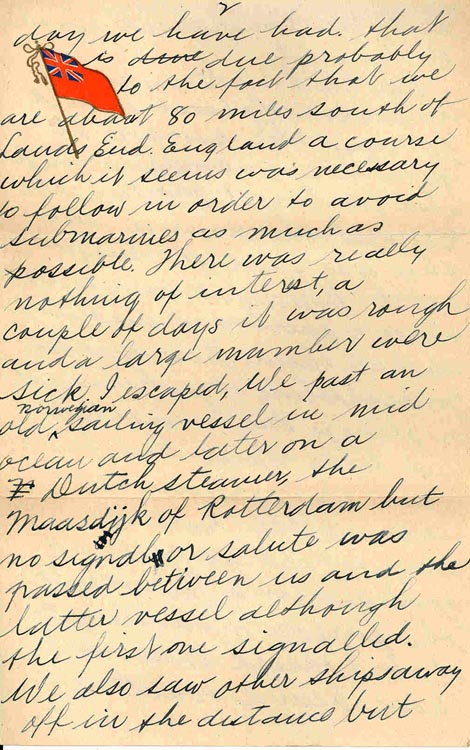 2
day we have had. that
is due due probably
to the fact that we
are about 80 miles south of
Lands End. England a course
which it seems was necessary
to follow in order to avoid
submarines as much as
possible. There was really
nothing of interest, a
couple of days it was rough
and a large number were
sick I escaped, We past an
old norwegian sailing vessel in mid
ocean and later on a
F Dutch steamer, the
Maasdijk of Rotterdam but
no signal or salute was
passed between us and the
latter vessel although
the first one signalled.
We also saw other ships away
off in the distance but